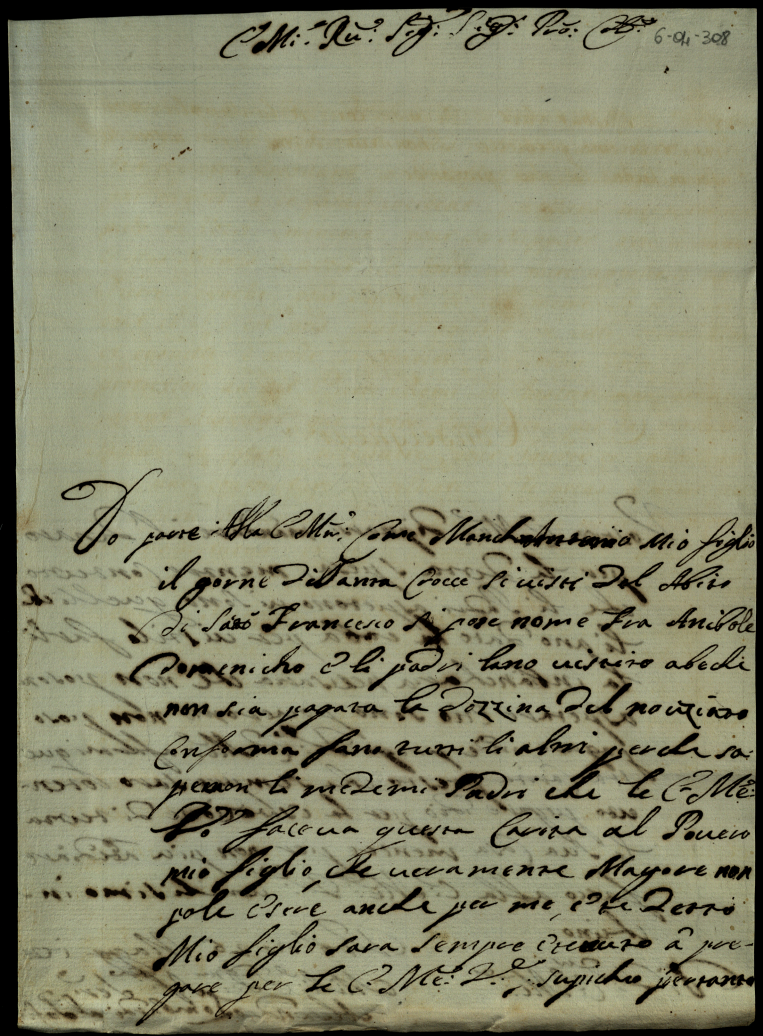 E.mi: Ru.o: Sig.r: Sig.r: Pro: 6-04-308
Do parte Alla E Mza: Come Marcho Antonio Mio figlio
il gorne di Santa Crocce si uisti del Abito
di Sato Francesco si pose nome Fra Anibole
Domenicho e li padri lano uistito abeche
non sia pagata la dozzina del nouiziato
Conforma fano tutti li altri perche sa-
peuon li medemi Padri che le E.Me:
V.e faceua questa Carita al Pouero
mio figlio, che ueramente Magore non
pole esere anche per me, e te detto
Mio figlio sara sempre etenuto a pre-
gare per le E. Me: V.e, supicho pertanto